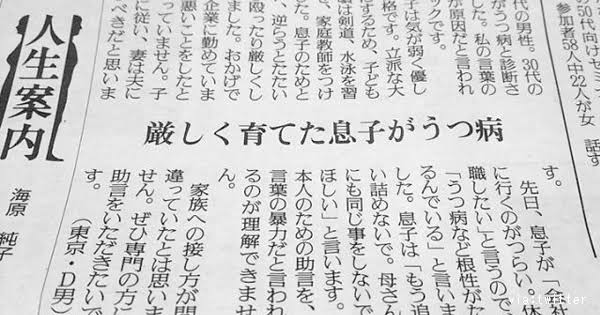 の50代向けセミナ
参加者58人中22人が女
話す
人生案内
海原 純子
厳しく育てた息子がうつ病
代の男性。30代の
がうつ病と診断さ
した。私の言葉の
が原因だと言われ
ックです。
子は気が弱く優し
格です。立派な大
にするため、子ども
は剣道、水泳を習
、家庭教師をつけ
した。息子のためと
、逆らうとたたい
殴ったり厳しくし
ました。おかげで
企業に勤めていま
悪いことをしたと
っていません。子
に従い、妻は夫に
べきだと思いま
す。
先日、息子が「会社
に行くのがつらい。休
職したい」と言うので、
「うつ病など根性がた
るんでいる」と言いま
した。息子は「もう追
い詰めないで。母さん
にも同じ事をしないで
ほしい」と言います。
本人のための助言を、
言葉の暴力だと言われ
るのが理解できませ
ん。
家族への接し方が間
違っていたとは思いま
せん。ぜひ専門の方に
助言をいただきたいで
す。
（東京・D男）
via:twitter